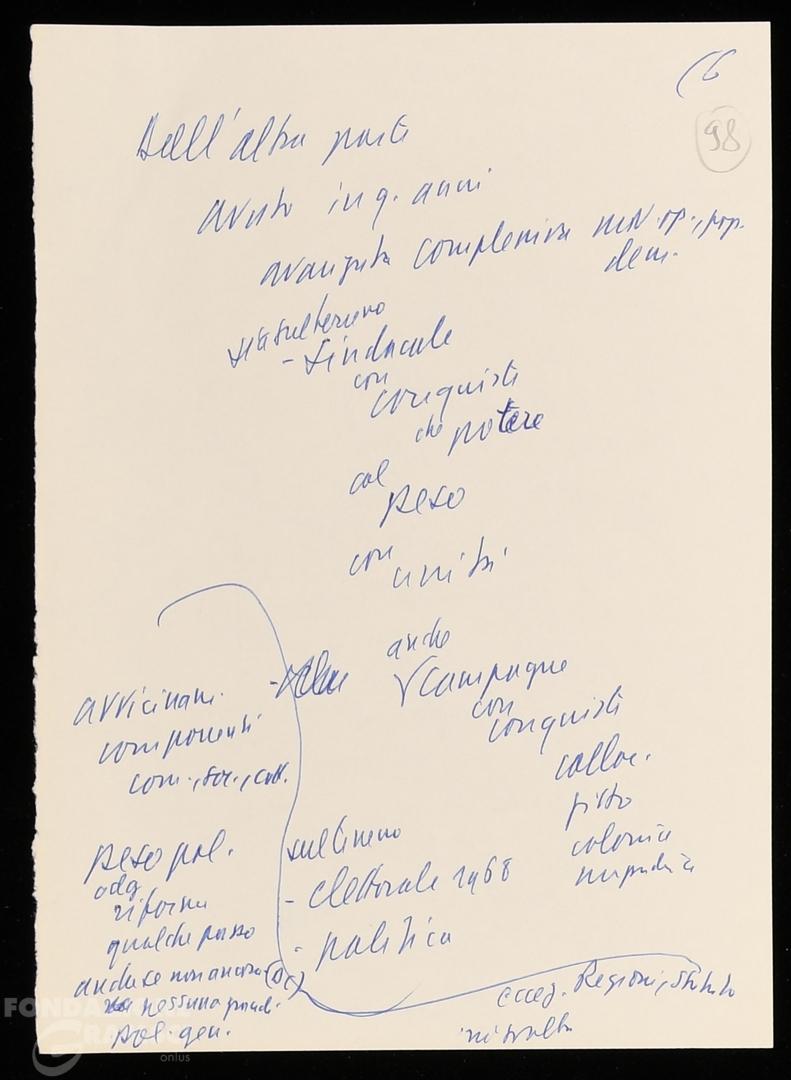 (6
98
Dall'altra parte
avuto in q. anni
avanzata complessiva mov. op., pop.
dem.
sia sul terreno
- sindacale
con
conquiste
che potere
col
peso
con
unità
anche
campagne
con
conquiste
colloc.
fitto
colonia
avvicinam.
componenti
com., soc., catt.
peso pol.
odg
riforma
qualche passo
anche se non ancora (DC)
nessuna
pol. gen.
sul terreno
- elettorale 1968
- politica
eccez. Regioni, Statuto
FONDAZIONE
GRAMSCI
onlus